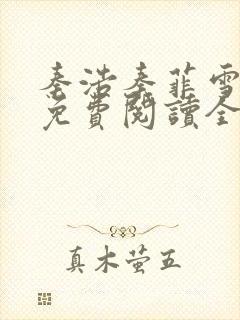 秦浩秦菲雪
免費閱讀全
真木萤五